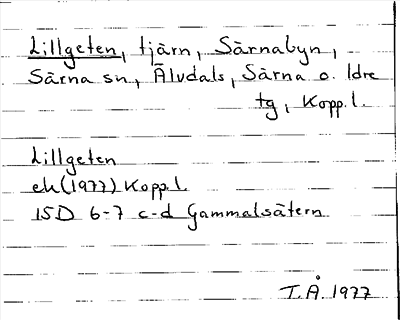 Lillgeten, tjärn, Särnabyn,
Särna sn, Älvdals, Särna o. Idre
tg, Kopp.l.
Lillgeten
ek(1977) Kopp.l.
15D 6-7 c-d Gammalsätern
T.Å. 1977